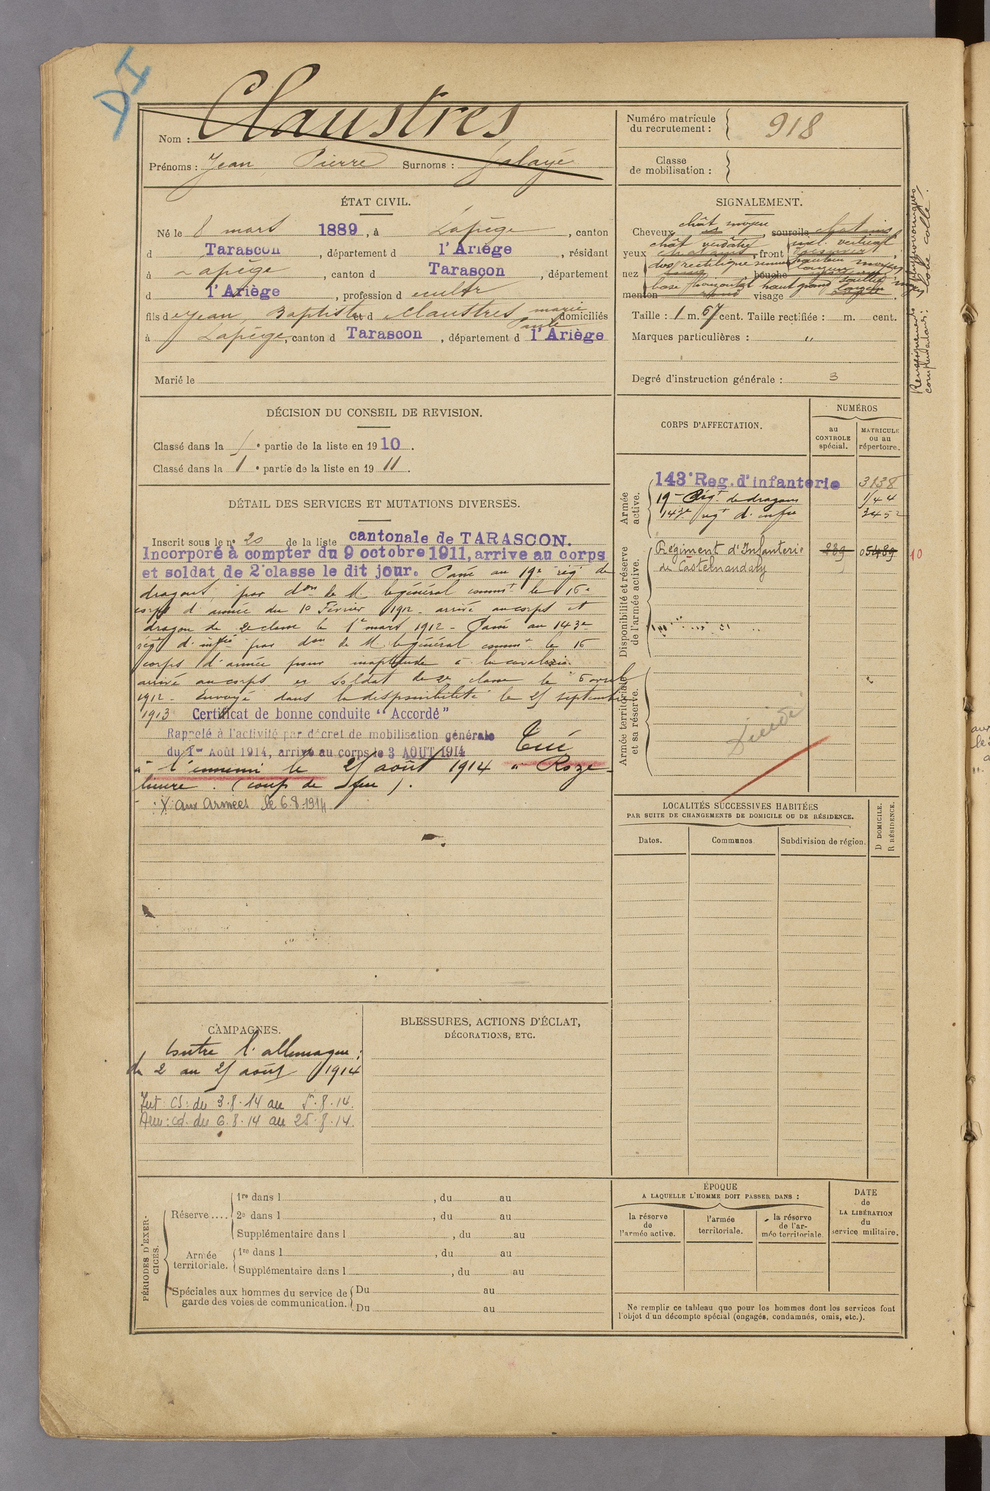 DI
Nom : Claustres
Prénoms : Jean Pierre Surnoms : Jalayé
Numéro matricule du recrutement : 918
Classe de mobilisation :
ÉTAT CIVIL.
Né le 8 mars 1889, à Lapège, canton
d Tarascon, département d l'Ariège, résidant
à Lapège, canton d Tarascon, département
d l'Ariège, profession d cultr
fils d e Jean Baptiste et d Claustres marie Paule domiciliés
à Lapège, canton d Tarascon, département d l'Ariège
Marié le
SIGNALEMENT.
Cheveux chât moyen sourcils chatains
yeux chât verdâtre, front vertical
nez dos rectiligne bouche hauteur moyen
base horizontal haut grand saillie moy
menton rond visage
Taille : 1 m. 67 cent. Taille rectifiée : m. cent.
Marques particulières : "
Degré d'instruction générale : 3
Renseignements physionomiques
complémentaires : lobe collé.
DÉCISION DU CONSEIL DE REVISION.
Classé dans la e partie de la liste en 1910.
Classé dans la 1 e partie de la liste en 1911.
DÉTAIL DES SERVICES ET MUTATIONS DIVERSES.
Inscrit sous le n° 20 de la liste cantonale de TARASCON.
Incorporé à compter du 9 octobre 1911, arrive au corps
et soldat de 2e classe le dit jour. Passé au 19e régt de
dragons, par don de M. le général commt le 16e
corps d'armée du 10 Février 1912. arrivé au corps et
dragon de 2e classe le 1er mars 1912 - Passé au 143e
régt d'infie par don de M. le général commt le 16
corps d'armée pour inaptitude à la cavalerie.
arrivé au corps et soldat de 2e classe le 6 avril
1912. Envoyé dans la disponibilité le 25 septembre
1913 Certificat de bonne conduite "Accordé"
Rappelé à l'activité par décret de mobilisation générale
du 1er Août 1914, arrivé au corps le 3 AOUT 1914 Tué
à l'ennemi le 25 août 1914 à Roze-
lieure. (coup de feu).
X. aux Armées le 6.8.1914
CORPS D'AFFECTATION.
NUMÉROS
au CONTROLE spécial.
MATRICULE ou au répertoire.
Armée active.
143e Reg. d'infanterie 3138
19e Régt de dragons 144
143e regt d'infie 3452
Disponibilité et réserve de l'armée active.
Régiment d'Infanterie 889 05489 10
de Castelnaudary
Armée territoriale et sa réserve.
Décédé
LOCALITÉS SUCCESSIVES HABITÉES
PAR SUITE DE CHANGEMENTS DE DOMICILE OU DE RÉSIDENCE.
Dates. Communes Subdivision de région. D DOMICILE. R RÉSIDENCE.
CAMPAGNES.
Contre l'allemagne :
du 2 au 25 août 1914
Int : CS : du 3.8.14 au 5.8.14.
Arm : cd. du 6.8.14 au 25.8.14.
BLESSURES, ACTIONS D'ÉCLAT,
DÉCORATIONS, ETC.
PÉRIODES D'EXERCICES.
Réserve....
1re dans l , du au
2e dans l , du au
Supplémentaire dans l , du au
Armée territoriale.
1re dans l , du au
Supplémentaire dans l , du au
Spéciales aux hommes du service de garde des voies de communication.
Du au
Du au
ÉPOQUE
A LAQUELLE L'HOMME DOIT PASSER DANS :
la réserve de l'armée active.
l'armée territoriale.
la réserve de l'armée territoriale.
DATE de LA LIBÉRATION du service militaire.
Ne remplir ce tableau que pour les hommes dont les services font
l'objet d'un décompte spécial (engagés, condamnés, omis, etc.).